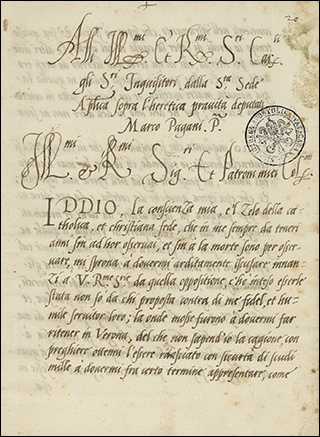 20
Alli Ill.mi et R.mi S.ri Car.li
gli S.ri Inquisitori, dalla S.ta Sede
Aplica sopra l'heretica pravità deputati
Marco Pagani. P.
Ill.mi et R.mi Sig.ri Et Patroni miei Col.mi
IDDIO, La conscienza mia, e'l Zelo della ca-
tholica, et christiana fede, che in me sempre da teneri
anni sin ad hor osservai, et sin a la morte sono per oser-
uare, mi sprona a douermi arditamente iscusare innan-
zi a V. R.me da quella oppositione, c'ho inteso esserle
stata non so da chi proposta contra di me fidel, et hu-
mile seruitor loro; la onde mosse furono à douermi far
ritener in Verona, del che non sapend'io la cagione, con
preghiere ottenni l'esere rilasciato con sicurtà di scudi
mille a douermi fra certo termine appresentare, come